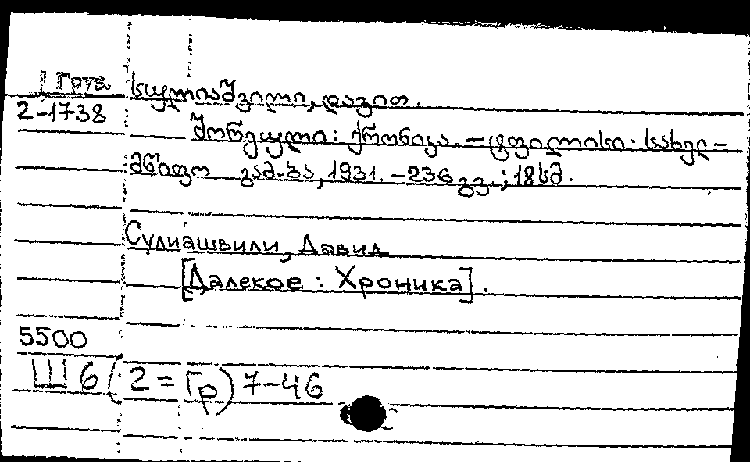 Груз. სულიაშვილი, დავით.
2-1738
შორეული: ქრონიკა. – ტფილისი: სახელ-
მწიფო გამ-ბა, 1931. – 236 გვ.; 18 სმ.
Сулиашвили, Давид
[Далекое : Хроника].
5500
Ш6(2=Гр)7-46